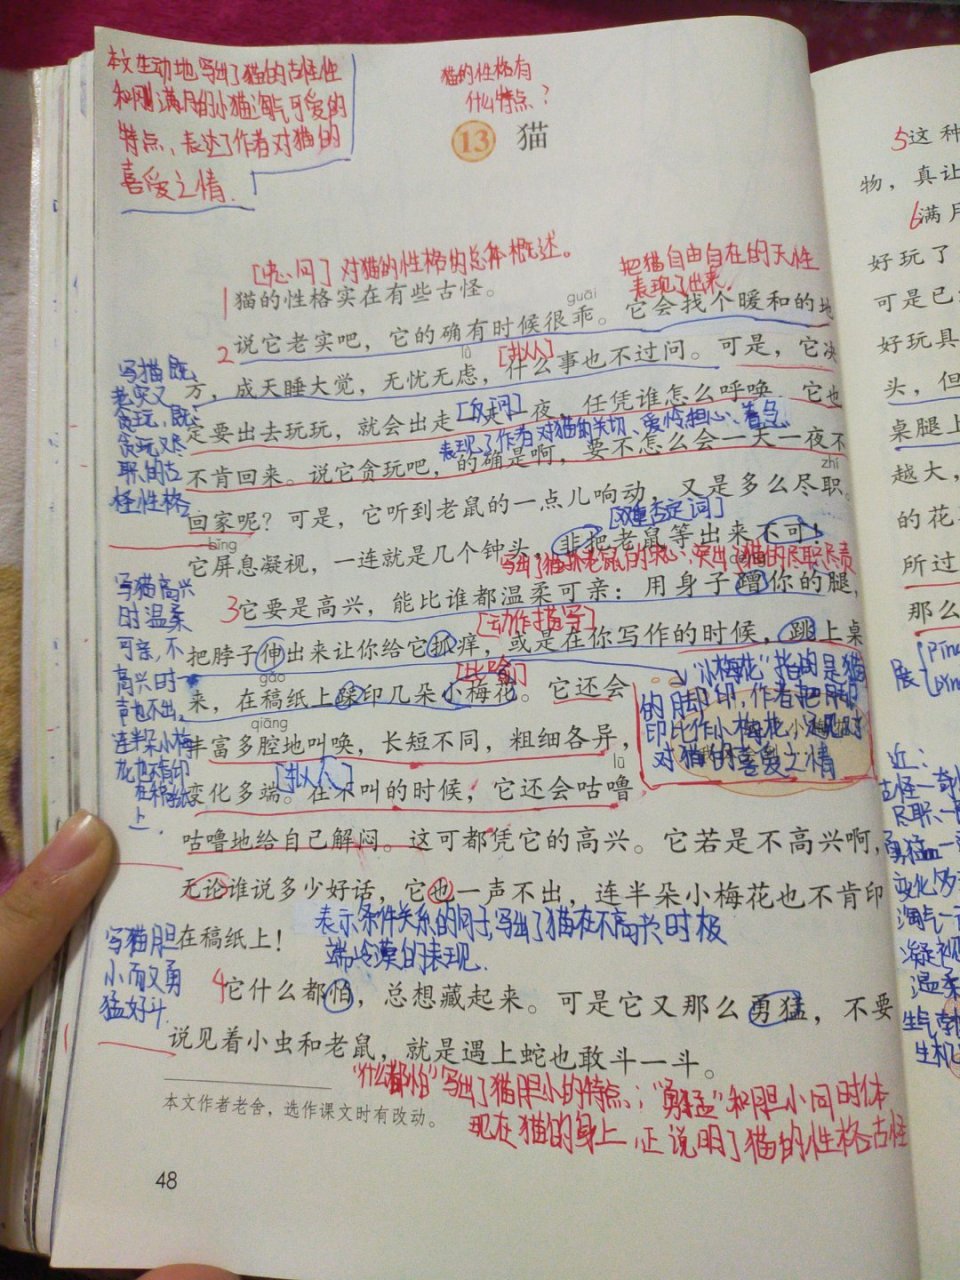 本文生动地写出了猫的古怪性
和刚满月的小猫淘气可爱的
特点、表达了作者对猫的
喜爱之情.
猫的性格有
什么特点?
13 猫
[中心句] 对猫的性格的总体概述。
把猫自由自在的天性
表现了出来.
1猫的性格实在有些古怪。
guāi
2说它老实吧，它的确有时候很乖。它会找个暖和的地
lǜ
[拟人]
方，成天睡大觉，无忧无虑，什么事也不过问。可是，它决
定要出去玩玩，就会出走一天一夜，任凭谁怎么呼唤，它也
[反问]
表现了作者对猫的关切、爱怜担心、着急
不肯回来。说它贪玩吧，的确是啊，要不怎么会一天一夜不
zhí
回家呢？可是，它听到老鼠的一点儿响动，又是多么尽职。
[双重否定词]
bǐng
它屏息凝视，一连就是几个钟头，非把老鼠等出来不可！
写猫既
老实又
贪玩，既
贪玩又尽
职的古
怪性格
3它要是高兴，能比谁都温柔可亲：用身子蹭你的腿，
[动作描写]
把脖子伸出来让你给它抓痒，或是在你写作的时候，跳上桌
[比喻]
gǎo
来，在稿纸上踩印几朵小梅花。它还会
qiāng
丰富多腔地叫唤，长短不同，粗细各异，
lū
变化多端。在不叫的时候，它还会咕噜
[拟人]
咕噜地给自己解闷。这可都凭它的高兴。它若是不高兴啊，
无论谁说多少好话，它也一声不出，连半朵小梅花也不肯印
在稿纸上！
"小梅花"指的是猫
的脚印，作者把脚印
印比作小梅花，
对猫的喜爱之情
写猫高兴
时温柔
可亲，不
高兴时一
声也不出，
连半朵小梅
花也不肯印
在稿纸
上.
表示条件关系的句子,写出了猫在不高兴时极
端冷漠的表现.
写猫胆
小而又勇
猛好斗.
4它什么都怕，总想藏起来。可是它又那么勇猛，不要
说见着小虫和老鼠，就是遇上蛇也敢斗一斗。
"什么都怕"写出了猫胆小的特点；"勇猛"和胆小同时体
现在猫的身上,正说明了猫的性格古怪
本文作者老舍，选作课文时有改动。
48
5这种
物，真让
6满月
好玩了
可是已
好玩具
头，但
桌腿上
越大，
的花
所过
那么
近：
尽职
变化多
淘气
凝视
温柔
生气
生机